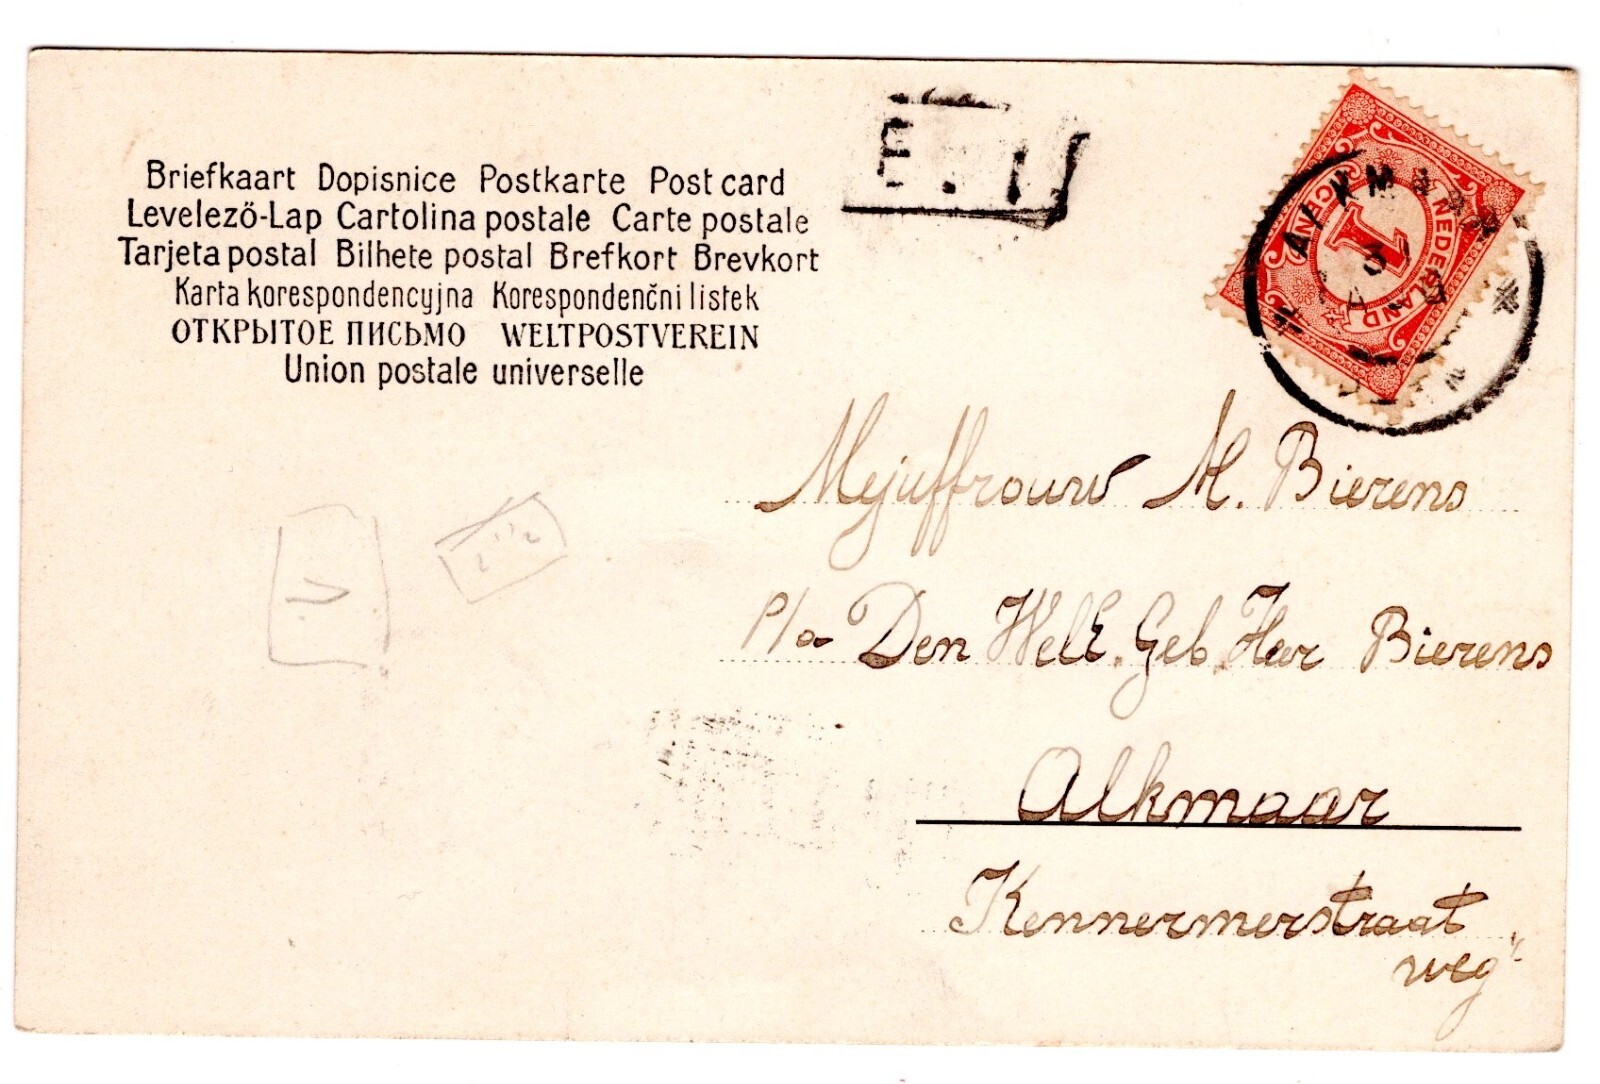 Briefkaart Dopisnice Postkarte Post card
Levelező-Lap Cartolina postale Carte postale
Tarjeta postal Bilhete postal Brefkort Brevkort
Karta korespondencyjna Korespondenčni listek
ОТКРЫТОЕ ПИСЬМО WELTPOSTVEREIN
Union postale universelle
NEDERLAND
1
CENT
Mejuffrouw M. Bierens
p/a Den WelE. Geb. Heer Bierens
Alkmaar
Kennermerstraat
weg
2 1/2